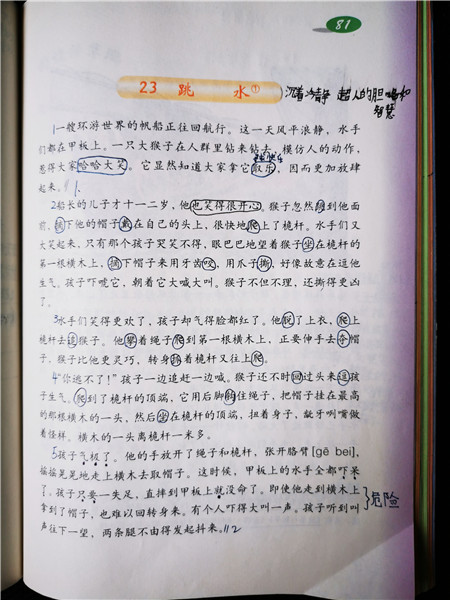 81
23 跳 水①
沉着冷静 超人的胆
智慧
1一艘环游世界的帆船正往回航行。这一天风平浪静，水手
们都在甲板上。一只大猴子在人群里钻来钻去，模仿人的动作，
惹得大家哈哈大笑。它显然知道大家拿它取乐，因而更加放肆
起来。
2船长的儿子才十一二岁，他也笑得很开心。猴子忽然跳到他面
前，摘下他的帽子戴在自己的头上，很快地爬上了桅杆。水手们又
大笑起来，只有那个孩子哭笑不得，眼巴巴地望着猴子坐在桅杆的
第一根横木上，摘下帽子来用牙齿咬，用爪子撕，好像故意在逗他
生气。孩子吓唬它，朝着它大喊大叫。猴子不但不理，还撕得更凶
了。
3水手们笑得更欢了，孩子却气得脸都红了。他脱了上衣，爬上
桅杆去追猴子。他攀着绳子爬到第一根横木上，正要伸手去夺帽
子，猴子比他更灵巧，转身抓着桅杆又往上爬。
4“你逃不了！”孩子一边追赶一边喊。猴子还不时回过头来逗孩
子生气。爬到了桅杆的顶端，它用后脚钩住绳子，把帽子挂在最高
的那根横木的一头，然后坐在桅杆的顶端，扭着身子，龇牙咧嘴做
着怪样。横木的一头离桅杆一米多。
5孩子气极了。他的手放开了绳子和桅杆，张开胳臂[gē bei]，
摇摇晃晃地走上横木去取帽子。这时候，甲板上的水手全都吓呆
了。孩子只要一失足，直摔到甲板上就没命了。即使他走到横木上
拿到了帽子，也难以回转身来。有个人吓得大叫一声。孩子听到叫
声往下一望，两条腿不由得发起抖来。
危险